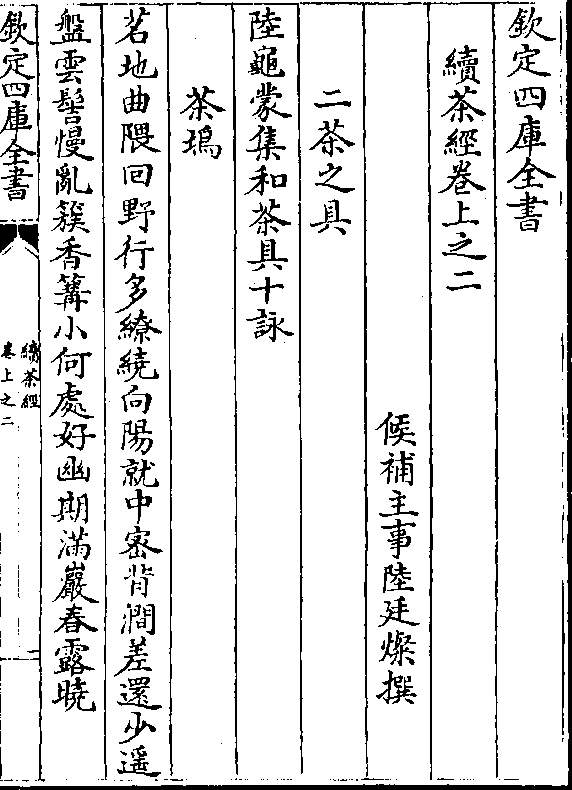 欽定四庫全書
續茶經卷上之二
候補主事陸廷燦撰
二茶之具
陸龜蒙集和茶具十詠
茶塢
茗地曲隈回野行多繚繞向陽就中密背澗差還少遥
盤雲髻慢亂簇香篝小何處好幽期滿巖春露曉
欽定四庫全書
續茶經
卷上之二